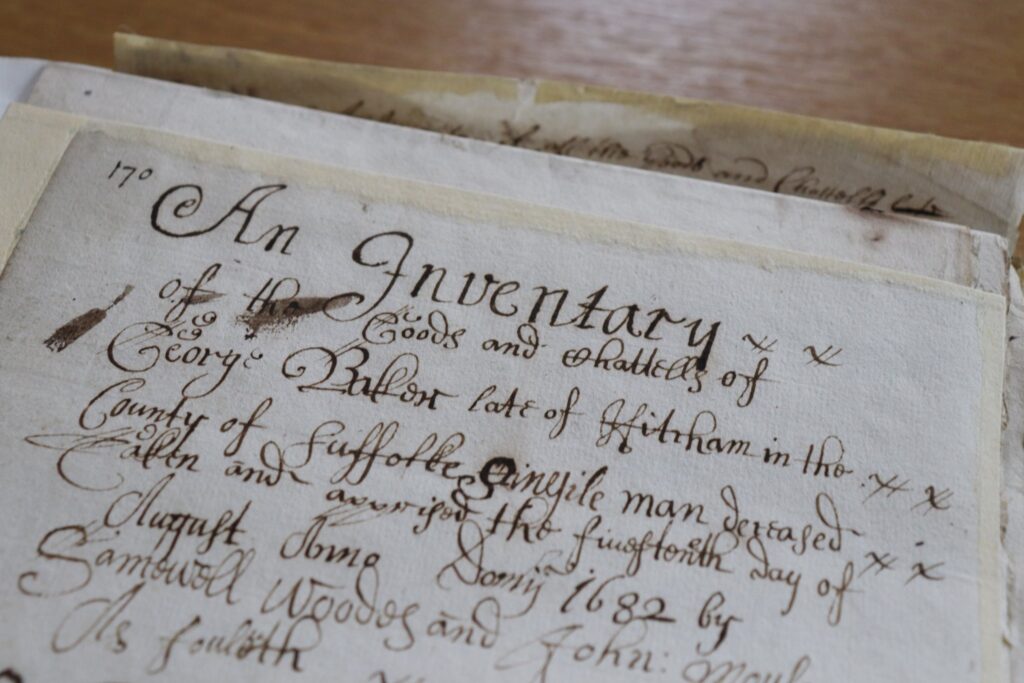 and Chattells
170
An Inventary
of the Goods and Chattells of
George Baker late of Hitcham in the
County of Suffolke Singile man deceased
Taken and apprised the fiueftenth day of
August Anno Domij 1682 by
Samewell Woodes and John:
As fouleth